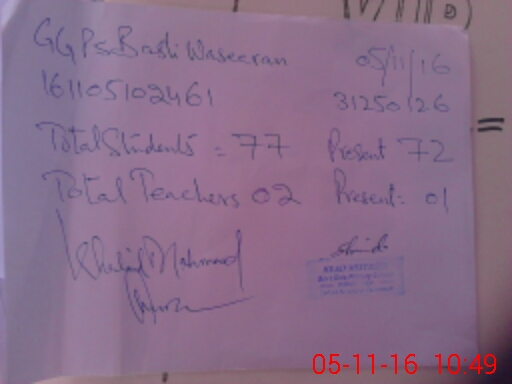 GGPS Basti Waseeran 05/11/16
161105102461 31250126
Total Students = 77 Present 72
Total Teachers 02 Present = 01
Khalid Mahmood
05-11-16 10:49